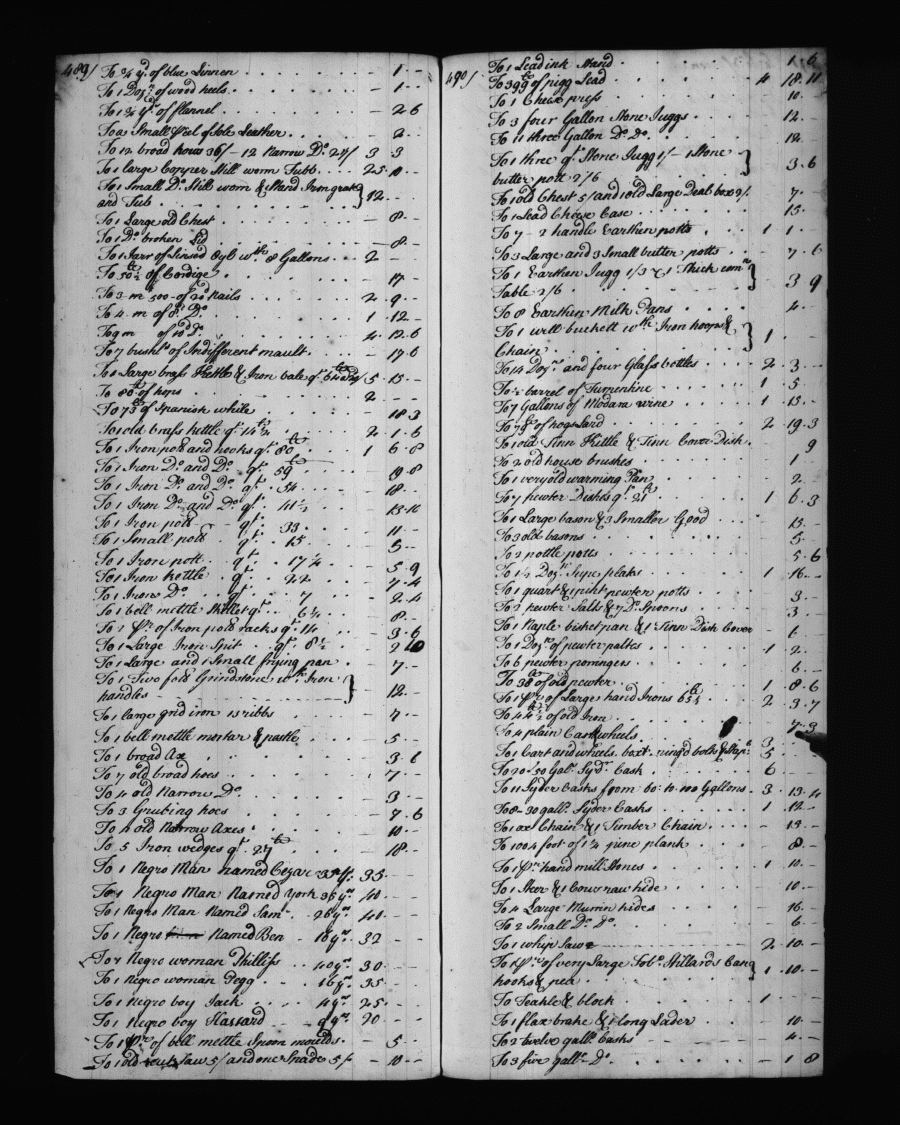 489/ To ¾ yd of blue Linnen - 1 - -
To 1 Dozn of wood heels - 1 - -
To 1¾ yds of flannel - 2 6
To a Small of Sole Leather - 2 -
To 12 broad hows 36/ - 12 Narrow Do 27/ 3 3
To 1 large Copper Still worm Tubb 25 - -
To 1 Small Do Still worm & Stand Iron grate
and Tub 12 - -
To 1 Large old Chest - 8 -
To 1 Do broken Lid - 8 -
To 1 Jarr of Linseed Oyl wth 8 Gallons 2 - -
To 50½ lb of Cordige - 17 -
To 3 m 500 of 20d Nails 2 9 -
To 4 m of 8d Do 1 12 -
To 9 m of 10d Do 4 12 6
To 7 bushls of Indifferent mault - 17 6
To 1 Large brass Kettle & Iron bale qt 5 15 -
To 80 lb of hops 2 - -
To 73 lb of Spanish white - 18 3
To 1 old brass kettle qt 14½ lb 2 1 6
To 1 Iron pott and hooks qt 80 lb 1 6 8
To 1 Iron Do and Do qt 59 19 8
To 1 Iron Do and Do qt 54 18 -
To 1 Iron Do and Do qt 41½ 13 10
To 1 Iron pott qt 33 11 -
To 1 Small pott qt 15 5 -
To 1 Iron pott qt 17¼ 5 9
To 1 Iron kettle qt 22 7 4
To 1 Iron Do qt 7 2 4
To 1 bell mettle Skillet qt 6¼ 8 -
To 2 pr of Iron pott racks qt 14 3 6
To 1 Large Iron Spit qt 8½ 2 10
To 1 Large and 1 Small frying pan 7 -
To 1 Two fold Grindstone wth Iron
handles 12 -
To 1 large grid iron 13 ribbs 7 -
To 1 bell mettle mortar & pastle 5 -
To 1 broad Ax 3 6
To 7 old broad hoes 7 -
To 4 old Narrow Do 3 -
To 3 Grubing hoes 7 6
To 4 old Narrow Axes 10 -
To 5 Iron wedges qt 27 lb 18 -
To 1 Negro Man named Cezar 35 - -
To 1 Negro Man Named York 36 yrs 40 - -
To 1 Negro Man Named Sam 26 yrs 40 - -
To 1 Negro Named Ben 16 yrs 32 - -
To 1 Negro woman Phillis 40 yrs 30 - -
To 1 Negro woman Pegg 16 yrs 35 - -
To 1 Negro boy Jack 4 yrs 25 - -
To 1 Negro boy Hassard 9 yrs 20 - -
To 1 pr of bell mettle Spoon moulds - 5 -
To 1 old Saw 5/ and one Spade 5/ - 10 -
490/ To 1 Lead ink Stand 1 6
To 399 lb of pigg Lead 4 18 11
To 1 Chees press 10 -
To 3 four Gallon Stone Juggs 12 -
To 11 three Gallon Do Do 12
To 1 three qt Stone Jugg 1/ - 1 Stone
butter pott 2/6 3 6
To 1 old Chest 5/ and 1 old Large Deal box 2/ 7 -
To 1 Lead Cheese Case 15 -
To 7 - 2 handle Earthen potts 1 1 -
To 3 Large and 3 Small butter potts - 7 6
To 1 Earthen Jugg 1/3 & 1 Thick
Table 2/6 3 9
To 8 Earthen Milk Pans 4 -
To 1 well buckett wth Iron hoops &
Chain 1 -
To 14 Dozn and four Glass bottles 2 3 -
To ½ barrel of Turpentine 1 5 -
To 7 Gallons of Madara wine 1 15 -
To 79 lb of hogs Lard 2 19 3
To 1 old Tinn Kettle & Tinn Cover Dish 9
To 2 old house brushes 1 -
To 1 very old warming Pan 2 -
To 7 pewter Dishes qt 21 lb 1 6 3
To 1 Large bason & 3 Smaller Good 15 -
To 3 old basons 5 -
To 2 pottle potts 5 6
To 1½ Dozn Supe plats 1 16 -
To 1 quart & 1 pint pewter potts 3 -
To 2 pewter Salts & 7 Do Spoons 3 -
To 1 Naple bisket pan & 1 Tinn Dish Cover - 6
To 1 Dozn of pewter paltes 1 2 -
To 6 pewter porringers 6 -
To 38 lb of old pewter 1 8 6
To 1 pr of Large hand Irons 65½ lb 2 3 7
To 44½ lb of old Iron 7 3
To 4 plain Cartwheels 3 -
To 1 Cart and wheels boxt ring'd bolts & Stapls 5 -
To 20 - 30 Galn Sydr Cask 6 -
To 11 Syder Casks from 60 to 100 Gallons 3 13 4
To 8 - 30 galln Syder Casks 1 12 -
To 1 ox Chain & 1 Timber Chain - 14 -
To 100¼ foot of 1¼ pine plank - 8 -
To 1 pr hand mill Stones 1 10 -
To 1 Steer & 1 Cow raw hide 10 -
To 4 Large Murrin hides 16 -
To 2 Small Do Do 6 -
To 1 whip Saw 2 10 -
To 1 pr of very Large Stillards
hooks & pea 1 10 -
To Teakle & block 1 - -
To 1 flax brake & 1 long Lader 10 -
To 2 twelve galln Casks 4 -
To 3 five galln Do - 1 8